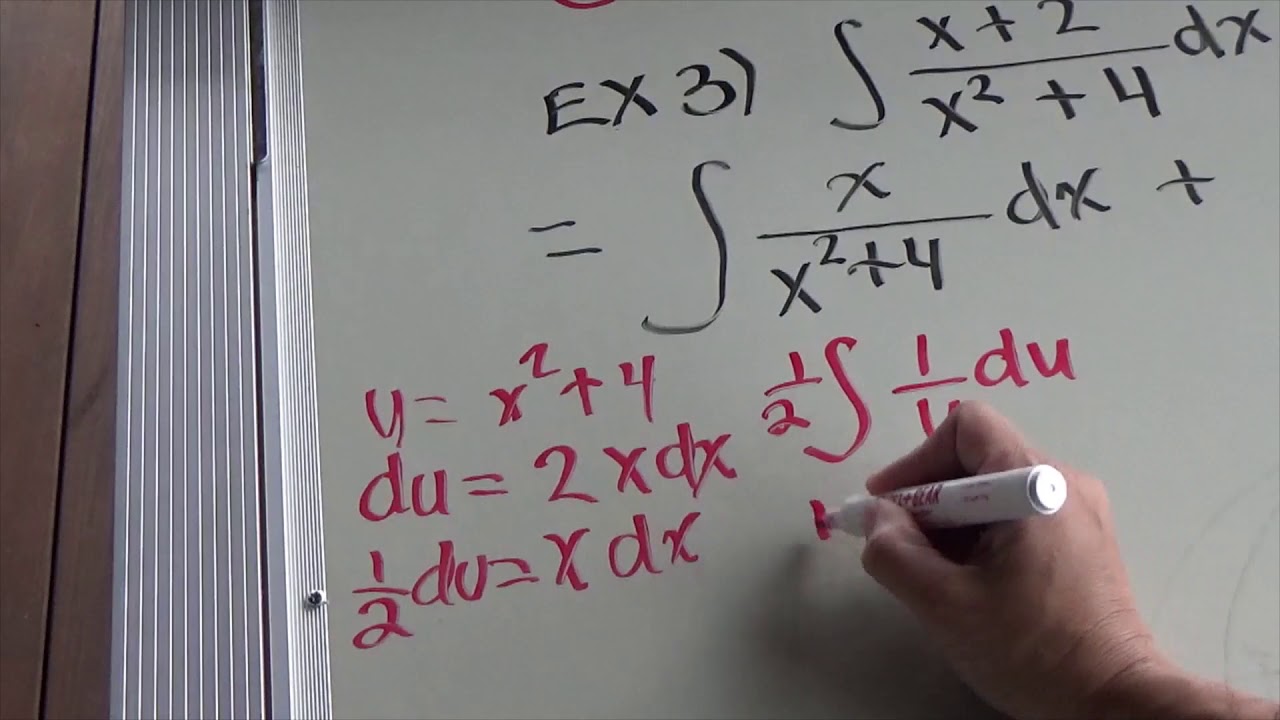 EX 3) ∫ x+2 / x² + 4 dx
= ∫ x / x²+4 dx +
u = x² + 4
1/2 ∫ 1/u du
du = 2x dx
1/2 du = x dx